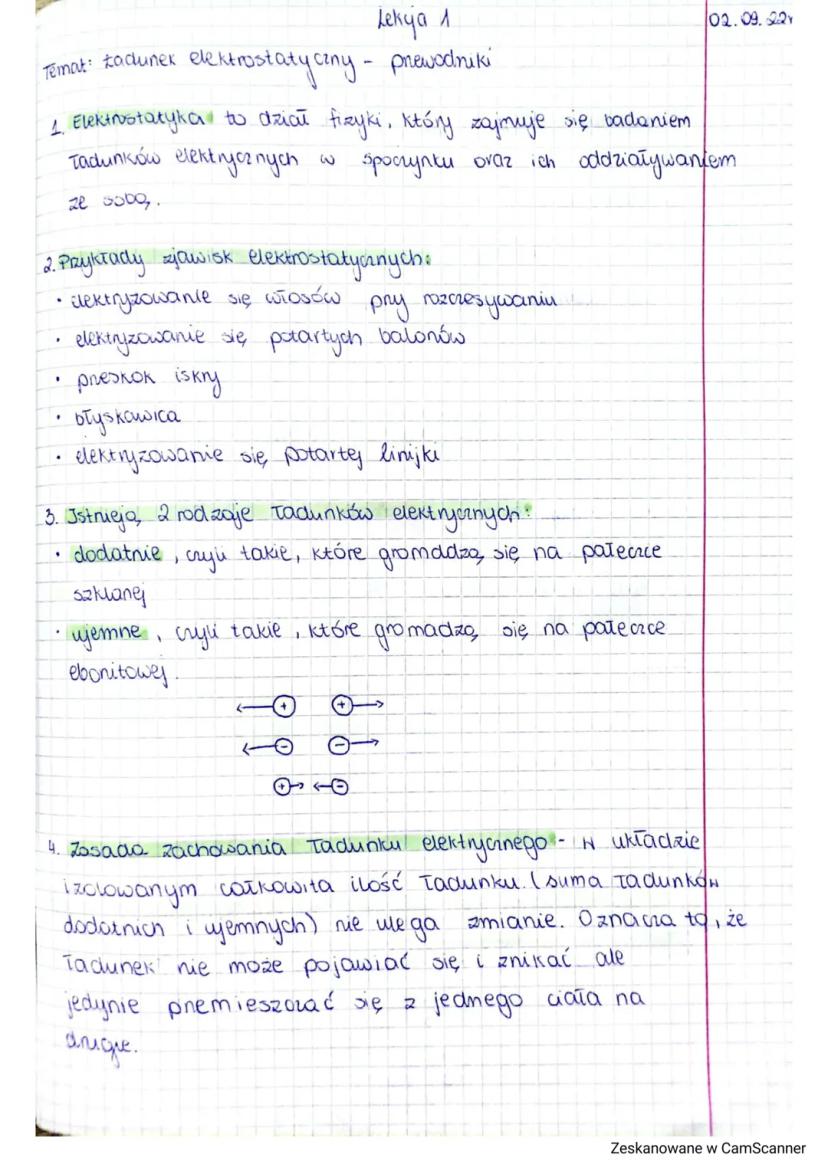 Lekcja 1
02.09.22r
Temat: Ładunek elektrostatyczny - przewodniki
1. Elektrostatyka to dział fizyki, który zajmuje się badaniem
ładunków elektrycznych w spoczynku oraz ich oddziaływaniem
ze sobą.
2. Przykłady zjawisk elektrostatycznych:
• elektryzowanie się włosów przy rozczesywaniu
• elektryzowanie się potartych balonów
• przeskok iskry
• błyskawica
• elektryzowanie się potartej linijki
3. Istnieją 2 rodzaje ładunków elektrycznych:
• dodatnie, czyli takie, które gromadzą się na pałeczce
szklanej
• ujemne, czyli takie, które gromadzą się na pałeczce
ebonitowej.
+ +
- -
+ -
4. Zasada zachowania ładunku elektrycznego - W układzie
izolowanym całkowita ilość ładunku (suma ładunków
dodatnich i ujemnych) nie ulega zmianie. Oznacza to, że
ładunek nie może pojawiać się i znikać ale
jedynie przemieszczać się z jednego ciała na
drugie.
Zeskanowane w CamScanner